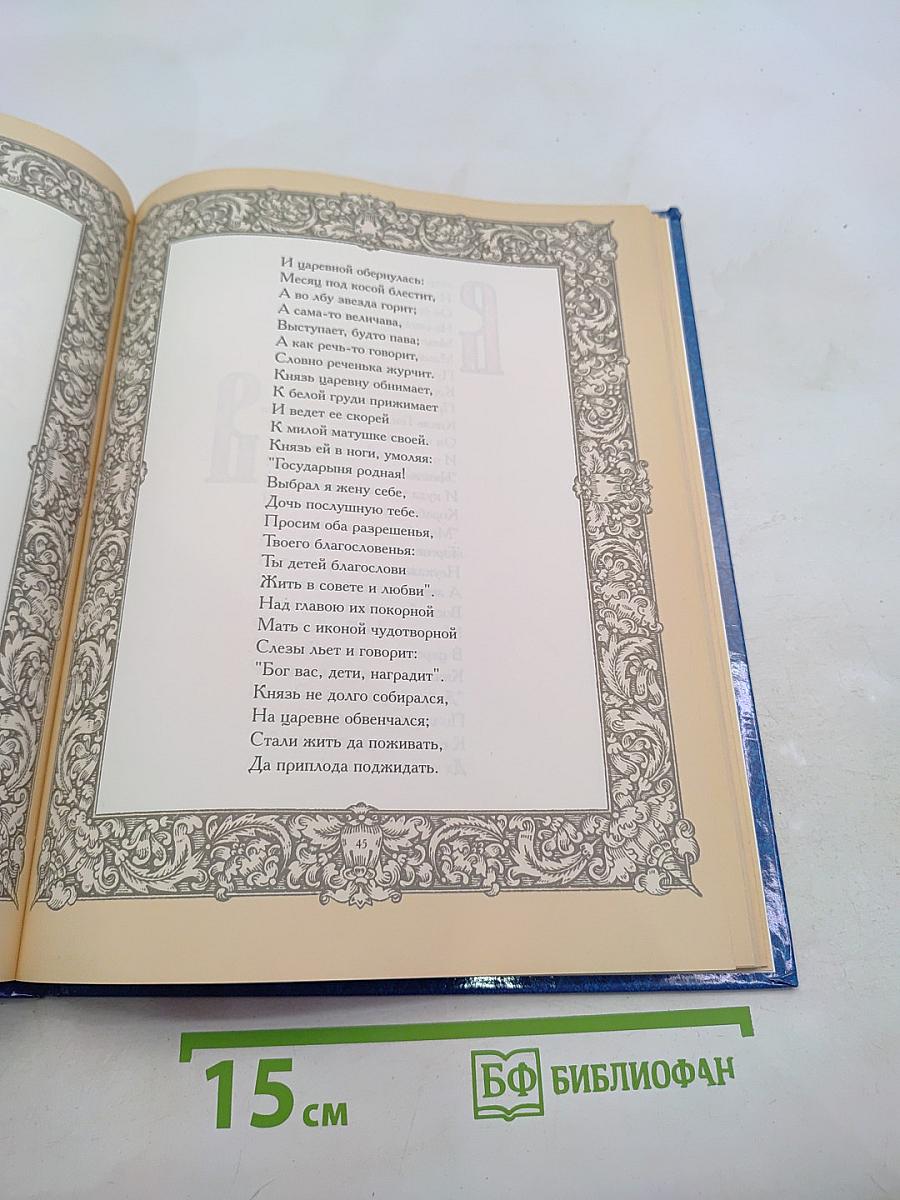 И царевной обернулась:
Месяц под косой блестит,
А во лбу звезда горит;
А сама-то величава,
Выступает, будто пава;
А как речь-то говорит,
Словно реченька журчит.
Князь царевну обнимает,
К белой груди прижимает
И ведет ее скорей
К милой матушке своей.
Князь ей в ноги, умоляя:
"Государыня родная!
Выбрал я жену себе,
Дочь послушную тебе.
Просим оба разрешенья,
Твоего благословенья:
Ты детей благослови
Жить в совете и любви".
Над главою их покорной
Мать с иконой чудотворной
Слезы льет и говорит:
"Бог вас, дети, наградит".
Князь не долго собирался,
На царевне обвенчался;
Стали жить да поживать,
Да приплода поджидать.
45
15 см
БФ БИБЛИОФАН